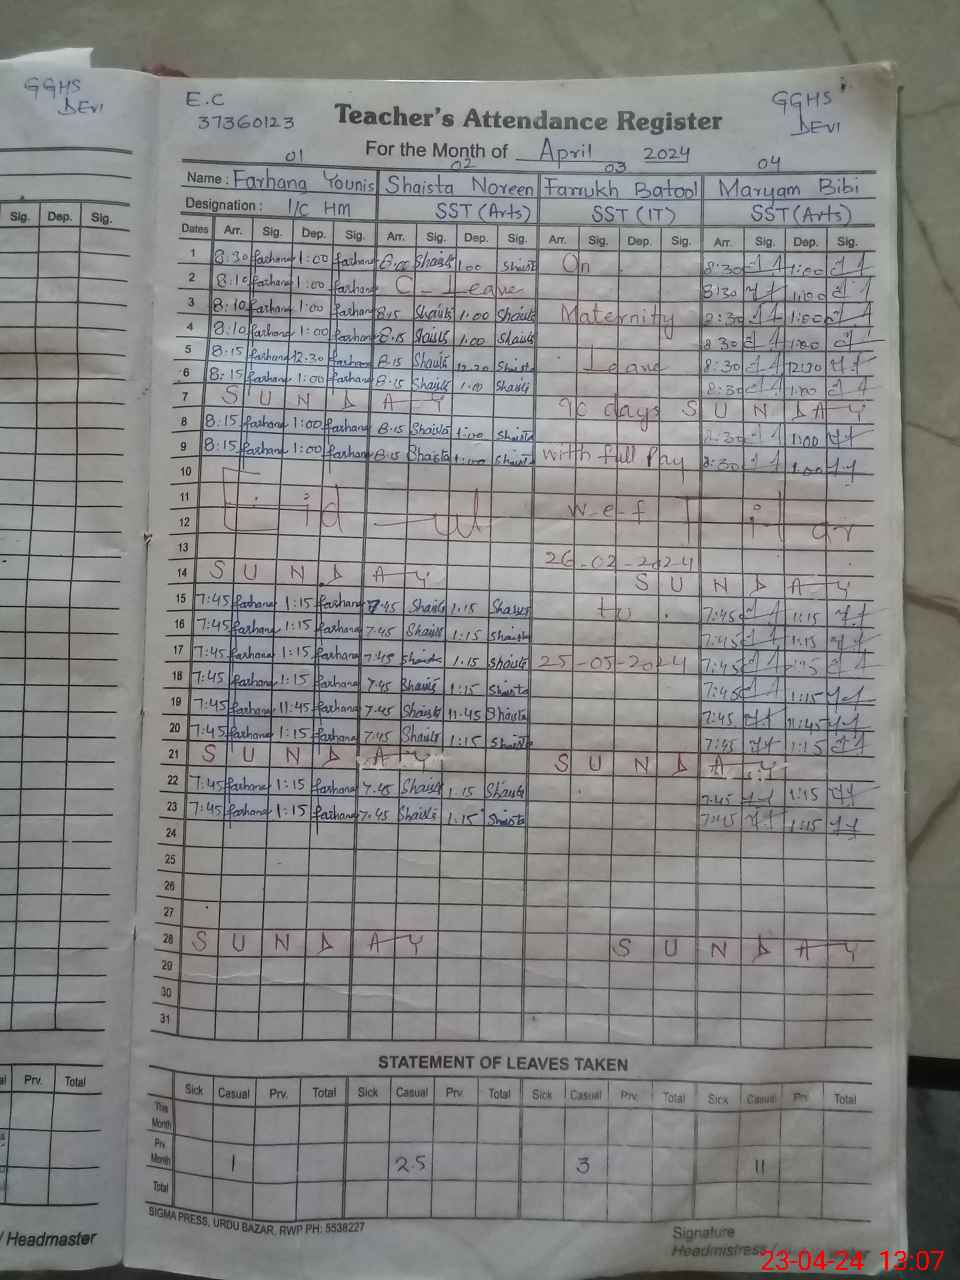 GGHS
DEVI
Sig. Dep. Sig.
Prv. Total
/ Headmaster
E.C
37360123
GGHS
DEVI
Teacher's Attendance Register
For the Month of April 2024
01 02 03 04
Name : Farhana Younis Shaista Noreen Farrukh Batool Maryam Bibi
Designation : I/C HM SST (Arts) SST (IT) SST (Arts)
Dates Arr. Sig. Dep. Sig. Arr. Sig. Dep. Sig. Arr. Sig. Dep. Sig. Arr. Sig. Dep. Sig.
1 8:30 farhana 1:00 farhana Shaista 1:00 Shaista On 8:30 1:00
2 8:10 farhana 1:00 farhana C-Leave 8:30 1:00
3 8:10 farhana 1:00 farhana 8:15 Shaista 1:00 Shaista Maternity 8:30 1:00
4 8:10 farhana 1:00 farhana 8:15 Shaista 1:00 Shaista 8:30 1:00
5 8:15 farhana 12:30 farhana 8:15 Shaista 12:30 Shaista Leave 8:30 12:30
6 8:15 farhana 1:00 farhana 8:15 Shaista 1:00 Shaista 8:30 1:00
7 S U N D A Y 90 days S U N D A Y
8 8:15 farhana 1:00 farhana 8:15 Shaista 1:00 Shaista 8:30 1:00
9 8:15 farhana 1:00 farhana 8:15 Shaista 1:00 Shaista with full Pay 8:30 1:00
10
11 Eid ul Fitar w-e-f
12
13 26-02-2024
14 S U N D A Y S U N D A Y
15 7:45 farhana 1:15 farhana 7:45 Shaista 1:15 Shaista to 7:45 1:15
16 7:45 farhana 1:15 farhana 7:45 Shaista 1:15 Shaista 7:45 1:15
17 7:45 farhana 1:15 farhana 7:45 Shaista 1:15 Shaista 25-05-2024 7:45 1:15
18 7:45 farhana 1:15 farhana 7:45 Shaista 1:15 Shaista 7:45 1:15
19 7:45 farhana 11:45 farhana 7:45 Shaista 11:45 Shaista 7:45 11:45
20 7:45 farhana 1:15 farhana 7:45 Shaista 1:15 Shaista 7:45 1:15
21 S U N D A Y S U N D A Y
22 7:45 farhana 1:15 farhana 7:45 Shaista 1:15 Shaista 7:45 1:15
23 7:45 farhana 1:15 farhana 7:45 Shaista 1:15 Shaista 7:45 1:15
24
25
26
27
28 S U N D A Y S U N D A Y
29
30
31
STATEMENT OF LEAVES TAKEN
Sick Casual Prv. Total Sick Casual Prv. Total Sick Casual Prv. Total Sick Casual Prv. Total
This Month
Prv. Month 1 2.5 3 11
Total
SIGMA PRESS, URDU BAZAR, RWP PH: 5538227
Signature
Headmistress /
23-04-24 13:07